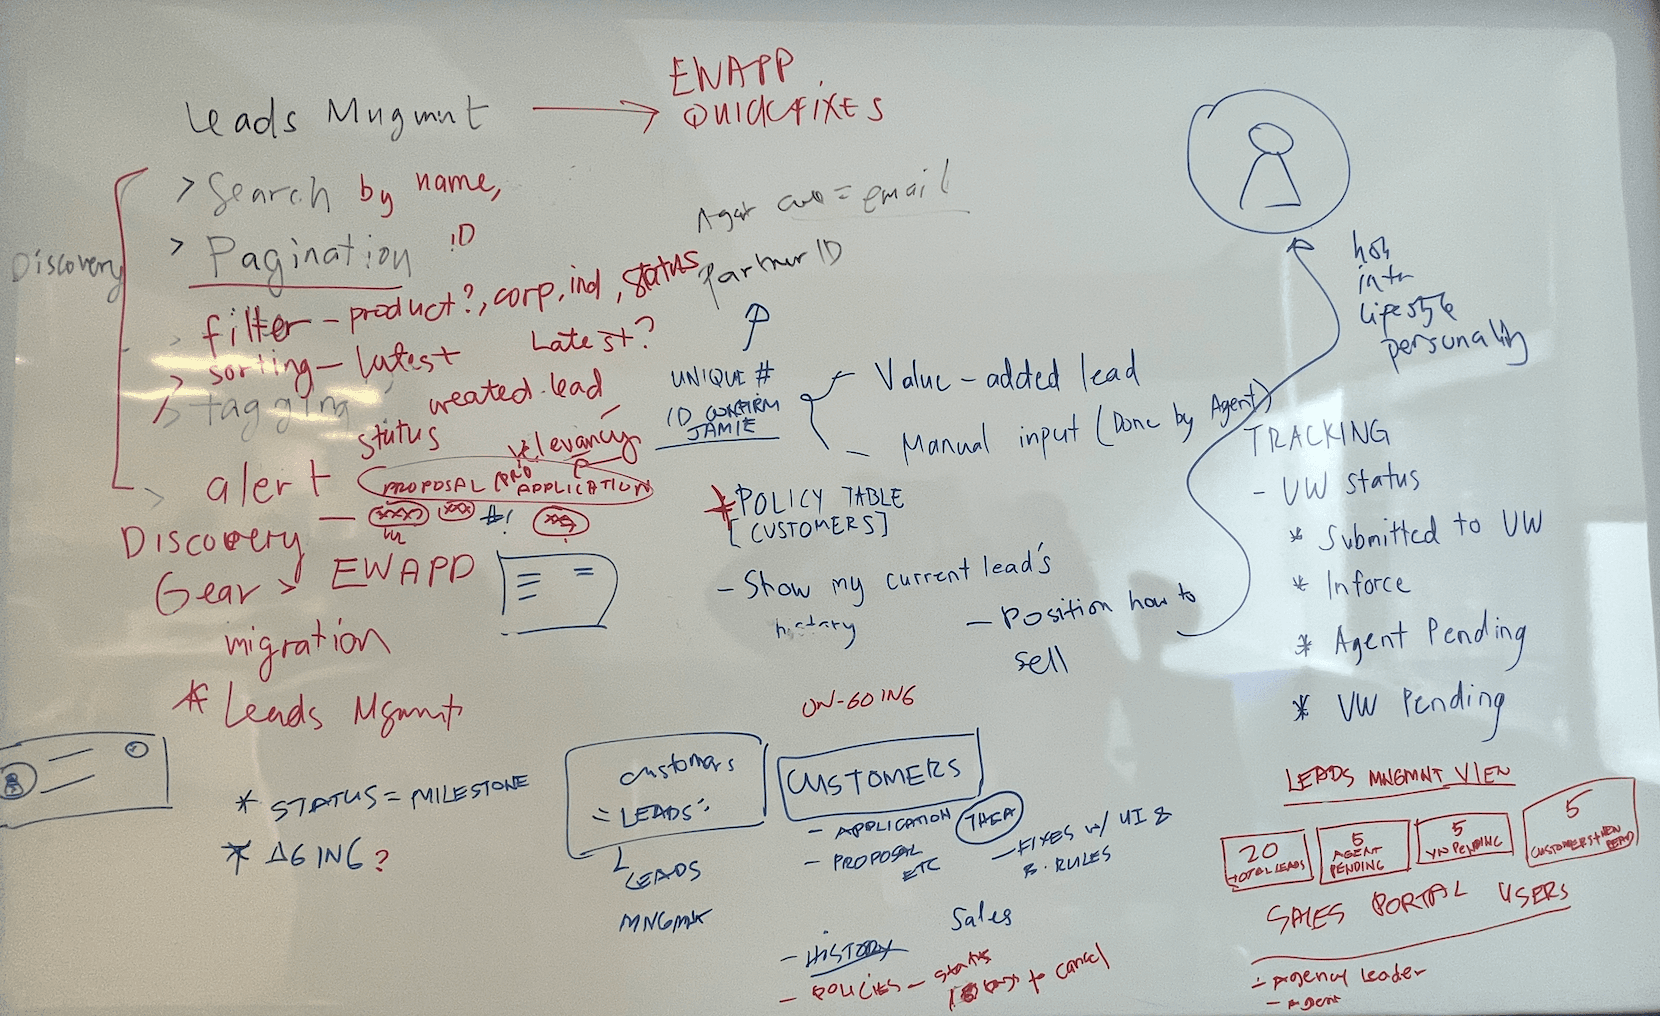 Leads Mngmnt
EWAPP
QUICKFIXES
Discovery
> Search by name,
ID
> Pagination
filter - product?, corp, ind, status
> sorting - latest
Latest?
created lead
> tagging
status
relevancy
> alert
PROPOSAL
APPLICATION
Discovery -
Gear > EWAPP
migration
* Leads Mgmnt
Agent = email
Partner ID
UNIQUE #
ID CONFIRM
JAMIE
Value-added lead
Manual input (Done by Agent)
* POLICY TABLE
[CUSTOMERS]
- Show my current lead's
history
- Position how to
sell
lifestyle
personality
TRACKING
- UW status
* Submitted to UW
* Inforce
* Agent Pending
* UW Pending
* STATUS = MILESTONE
* AGING?
customers
"LEADS"
LEADS
MNGMNT
ON-GOING
CUSTOMERS
- APPLICATION
- PROPOSAL
ETC
- FIXES w/ UI &
B. RULES
Sales
- HISTORY
- POLICIES - status
to cancel
LEADS MNGMNT VIEW
20
TOTAL LEADS
5
AGENT
PENDING
5
UW PENDING
5
CUSTOMERS + NEW
SALES PORTAL USERS
- Agency Leader
- Agent